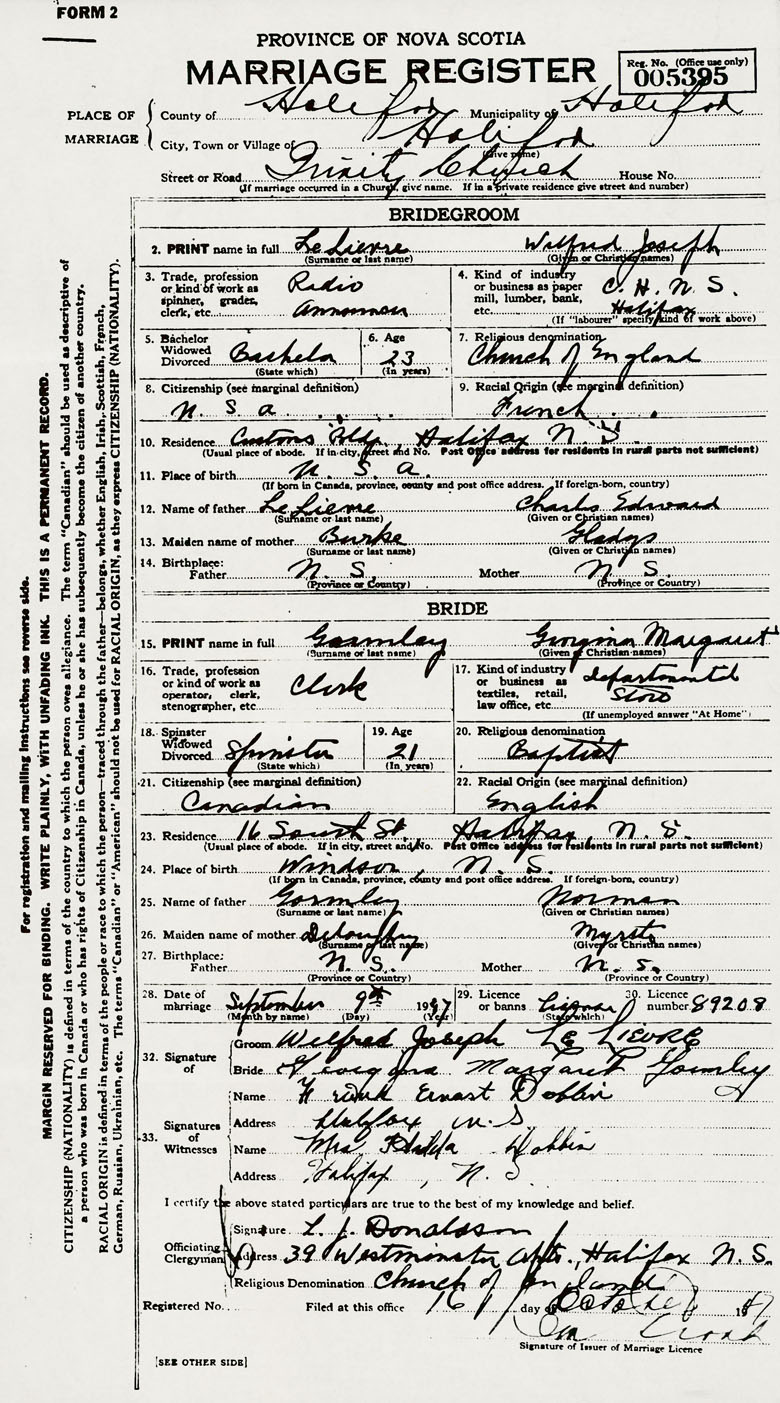 FORM 2
PROVINCE OF NOVA SCOTIA
MARRIAGE REGISTER
Reg. No. (Office use only)
005395
PLACE OF MARRIAGE
County of Halifax Municipality of Halifax
City, Town or Village of Halifax
(Give name)
Street or Road Trinity Church House No.
(If marriage occurred in a Church, give name. If in a private residence give street and number)
BRIDEGROOM
2. PRINT name in full LeLievre Wilfred Joseph
(Surname or last name) (Given or Christian names)
3. Trade, profession or kind of work as spinher, grades, clerk, etc. Radio Announcer
4. Kind of industry or business as paper mill, lumber, bank, etc. C. H. N. S. Halifax
(If "labourer" specify kind of work above)
5. Bachelor Widowed Divorced Bachelor
(State which)
6. Age 23
(In years)
7. Religious denomination Church of England
8. Citizenship (see marginal definition)
U. S. A.
9. Racial Origin (see marginal definition)
French
10. Residence Customs Bldg., Halifax N. S.
(Usual place of abode. If in city, street and No. Post Office address for residents in rural parts not sufficient)
11. Place of birth U. S. A.
(If born in Canada, province, county and post office address. If foreign-born, country)
12. Name of father LeLievre Charles Edward
(Surname or last name) (Given or Christian names)
13. Maiden name of mother Burke Gladys
(Surname or last name) (Given or Christian names)
14. Birthplace:
Father N. S. Mother N. S.
(Province or Country) (Province or Country)
BRIDE
15. PRINT name in full Gormley Georgina Margaret
(Surname or last name) (Given or Christian names)
16. Trade, profession or kind of work as operator, clerk, stenographer, etc. Clerk
17. Kind of industry or business as textiles, retail, law office, etc. departmental Store
(If unemployed answer "At Home")
18. Spinster Widowed Divorced Spinster
(State which)
19. Age 21
(In years)
20. Religious denomination
Baptist
21. Citizenship (see marginal definition)
Canadian
22. Racial Origin (see marginal definition)
English
23. Residence 16 South St., Halifax, N. S.
(Usual place of abode. If in city, street and No. Post Office address for residents in rural parts not sufficient)
24. Place of birth Windsor, N. S.
(If born in Canada, province, county and post office address. If foreign-born, country)
25. Name of father Gormley Norman
(Surname or last name) (Given or Christian names)
26. Maiden name of mother
(Surname or last name) (Given or Christian names)
27. Birthplace:
Father N. S. Mother N. S.
(Province or Country) (Province or Country)
28. Date of marriage September 9th 1947
(Month by name) (Day) (Year)
29. Licence or banns License
(State which)
30. Licence number 89208
32. Signature of
Groom Wilfred Joseph LE LIEVRE
Bride Georgina Margaret Gormley
33. Signatures of Witnesses
Name Frank Ernest Dobbin
Address Halifax N. S
Name Mrs. Hilda Dobbin
Address Halifax, N. S
I certify the above stated particulars are true to the best of my knowledge and belief.
Officiating Clergyman
Signature L. J. Donaldson
Address 39 Westminster Apts., Halifax N. S.
Religious Denomination Church of England
Registered No. Filed at this office 16 day of October 1947
Signature of Issuer of Marriage Licence
[SEE OTHER SIDE]
For registration and mailing instructions see reverse side.
MARGIN RESERVED FOR BINDING. WRITE PLAINLY, WITH UNFADING INK. THIS IS A PERMANENT RECORD.
CITIZENSHIP (NATIONALITY) is defined in terms of the country to which the person owes allegiance. The term "Canadian" should be used as descriptive of
a person who was born in Canada or who has rights of Citizenship in Canada, unless he or she has subsequently become the citizen of another country.
RACIAL ORIGIN is defined in terms of the people or race to which the person—traced through the father—belongs, whether English, Irish, Scottish, French,
German, Russian, Ukrainian, etc. The terms "Canadian" or "American" should not be used for RACIAL ORIGIN, as they express CITIZENSHIP (NATIONALITY).